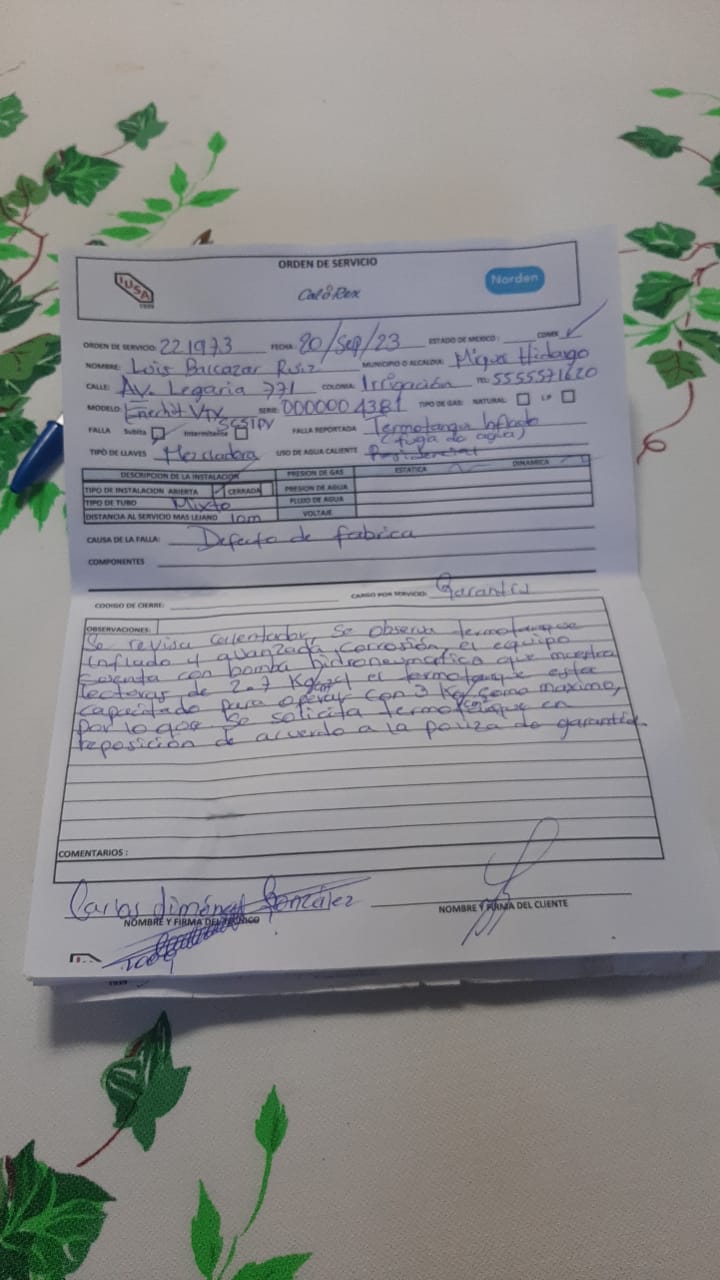 ORDEN DE SERVICIO
IUSA
1939
CalORex
Norden
ORDEN DE SERVICIO: 221973 FECHA: 20/Sep/23 ESTADO DE MEXICO: CDMX ✓
NOMBRE: Luis Balcazar Ruiz MUNICIPIO O ALCALDIA: Miguel Hidalgo
CALLE: AV. Legaria 771 COLONIA: Irrigación TEL: 5555571620
MODELO: SERIE: 0000004381 TIPO DE GAS: NATURAL LP
FALLA Subita Intermitente FALLA REPORTADA: Termotanque Inflado
(fuga de agua)
TIPO DE LLAVES Mezcladora USO DE AGUA CALIENTE Residencial
DESCRIPCION DE LA INSTALACION PRESION DE GAS ESTATICA DINAMICA
TIPO DE INSTALACION ABIERTA ✓ CERRADA PRESION DE AGUA
TIPO DE TUBO Mixto FLUJO DE AGUA
DISTANCIA AL SERVICIO MAS LEJANO 10m VOLTAJE
CAUSA DE LA FALLA: Defecto de fabrica
COMPONENTES
CODIGO DE CIERRE: CARGO POR SERVICIO: Garantia
OBSERVACIONES:
Se revisa calentador, se observa termotanque
inflado y avanzada corrosión, el equipo
cuenta con bomba hidroneumatica que muestra
lecturas de 2.7 Kg/cm2 el termotanque esta
capacitado para operar con 3 Kg/cm2 como maximo,
por lo que se solicita termotanque en
reposición de acuerdo a la poliza de garantia.
COMENTARIOS :
Carlos Jiménez González
NOMBRE Y FIRMA DEL TECNICO NOMBRE Y FIRMA DEL CLIENTE
1939